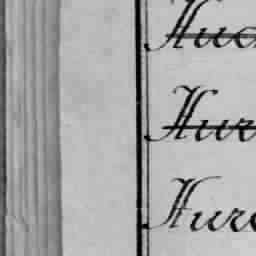 Hud
Hur
Huro